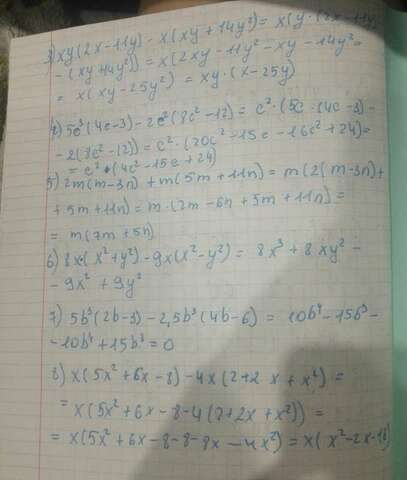 3) xy(2x-11y) - x(xy+14y²) = x(y·(2x-11y)-
-(xy+14y²)) = x(2xy-11y²-xy-14y²=
= x(xy-25y²) = xy·(x-25y)
4) 5c³(4c-3)-2c²(8c²-12) = c²·(5c·(4c-3)-
-2(8c²-12)) = c²·(20c²-15c-16c²+24)=
= c²·(4c²-15c+24)
5) 2m(m-3n)+m(5m+11n) = m(2(m-3n)+
+5m+11n) = m·(2m-6n+5m+11n) =
= m(7m+5n)
6) 8x·(x²+y²)-9x(x²-y²) = 8x³+8xy²-
-9x²+9y²
7) 5b³(2b-3)-2,5b³(4b-6) = 10b⁴-15b³-
-10b⁴+15b³=0
8) x(5x²+6x-8)-4x(2+2x+x²)=
= x(5x²+6x-8-4(2+2x+x²))=
= x(5x²+6x-8-8-8x-4x²) = x(x²-2x-16)